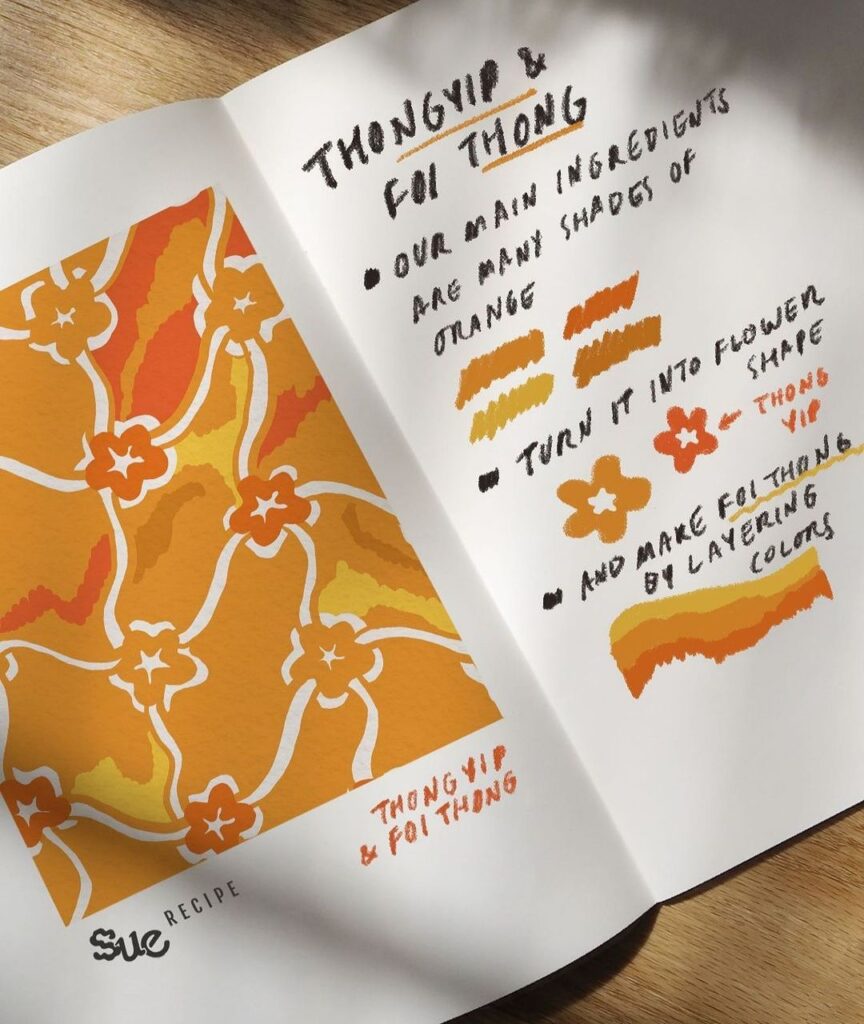 THONGYIP &
FOI THONG
OUR MAIN INGREDIENTS
ARE MANY SHADES OF
ORANGE
TURN IT INTO FLOWER
SHAPE
THONG
YIP
AND MAKE FOI THONG
BY LAYERING
COLORS
THONGYIP
& FOI THONG
Sue RECIPE